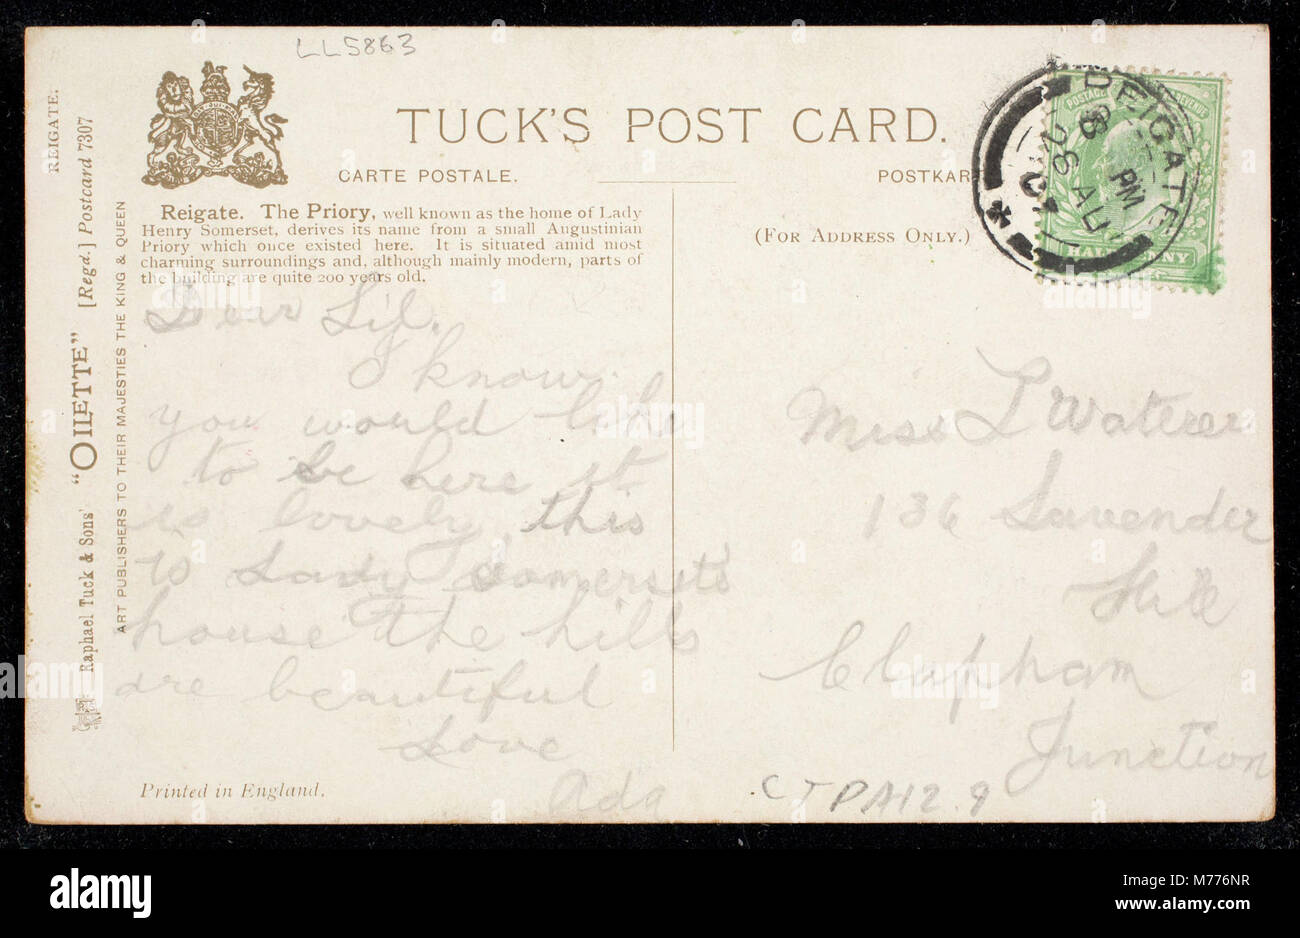 LL5863
TUCK'S POST CARD.
CARTE POSTALE.
POSTKAR
(FOR ADDRESS ONLY.)
REIGATE
8 PM
26 AU
07
POSTAGE
REVENUE
HALF NNY
Reigate. The Priory, well known as the home of Lady
Henry Somerset, derives its name from a small Augustinian
Priory which once existed here. It is situated amid most
charming surroundings and, although mainly modern, parts of
the building are quite 200 years old.
Dear Lil.
I know
you would like
to be here it
is lovely, this
is Lady Somersets
house the hills
are beautiful
Love
Ada
Miss L Waterer
136 Lavender
Hill
Clapham
Junction
CTPA12.9
Printed in England.
REIGATE.
[Regd.] Postcard 7307
Raphael Tuck & Sons' "OILETTE"
ART PUBLISHERS TO THEIR MAJESTIES THE KING & QUEEN
alamy
Image ID: M776NR
www.alamy.com